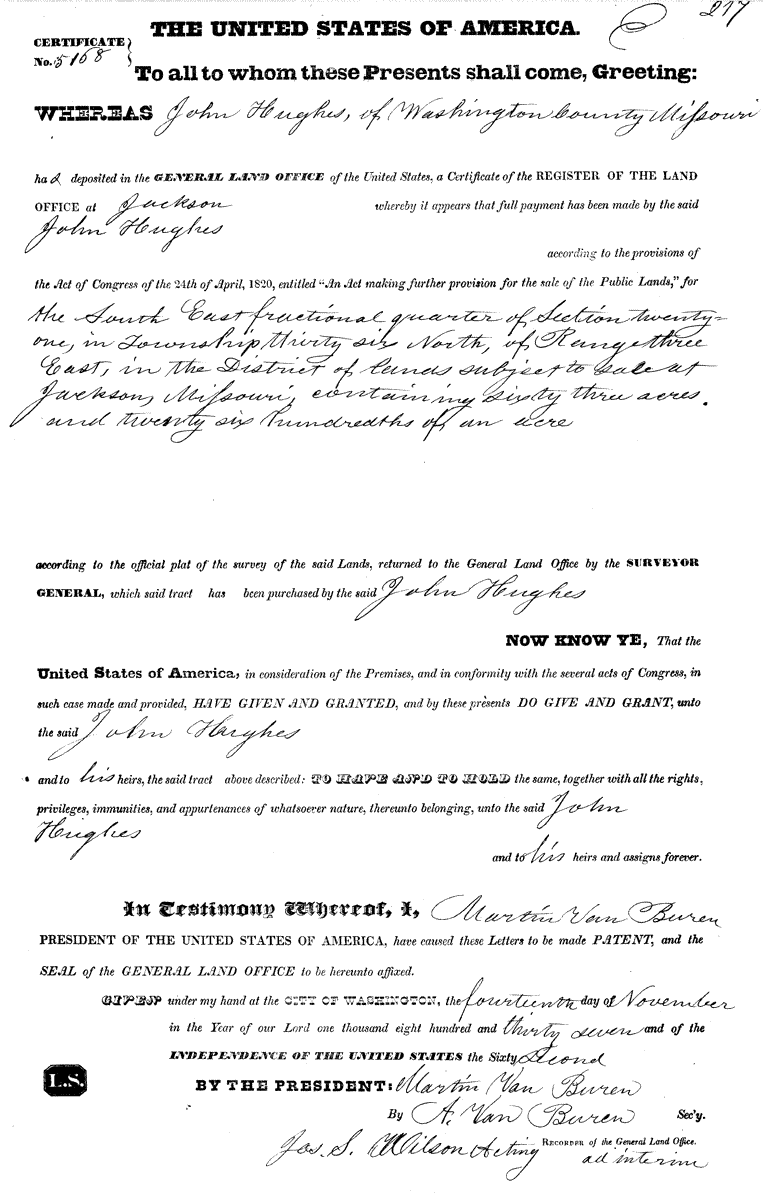 217
THE UNITED STATES OF AMERICA.
CERTIFICATE
No. 5158
To all to whom these Presents shall come, Greeting:
WHEREAS John Hughes, of Washington County Missouri
had deposited in the GENERAL LAND OFFICE of the United States, a Certificate of the REGISTER OF THE LAND
OFFICE at Jackson whereby it appears that full payment has been made by the said
John Hughes
according to the provisions of
the Act of Congress of the 24th of April, 1820, entitled "An Act making further provision for the sale of the Public Lands," for
the South East fractional quarter of Section twenty-
one, in Township, thirty six North, of Range three
East, in the District of lands subject to sale at
Jackson, Missouri, containing sixty three acres.
and twenty six hundredths of an acre
according to the official plat of the survey of the said Lands, returned to the General Land Office by the SURVEYOR
GENERAL, which said tract has been purchased by the said John Hughes
NOW KNOW YE, That the
United States of America, in consideration of the Premises, and in conformity with the several acts of Congress, in
such case made and provided, HAVE GIVEN AND GRANTED, and by these presents DO GIVE AND GRANT, unto
the said John Hughes
and to his heirs, the said tract above described: TO HAVE AND TO HOLD the same, together with all the rights,
privileges, immunities, and appurtenances of whatsoever nature, thereunto belonging, unto the said John
Hughes
and to his heirs and assigns forever.
In Testimony Whereof, I, Martin Van Buren
PRESIDENT OF THE UNITED STATES OF AMERICA, have caused these Letters to be made PATENT, and the
SEAL of the GENERAL LAND OFFICE to be hereunto affixed.
GIVEN under my hand at the CITY OF WASHINGTON, the fourteenth day of November
in the Year of our Lord one thousand eight hundred and thirty seven and of the
INDEPENDENCE OF THE UNITED STATES the Sixty second
L.S.
BY THE PRESIDENT: Martin Van Buren
By A. Van Buren Sec'y.
Jos. S. Wilson Acting RECORDER of the General Land Office.
ad interim